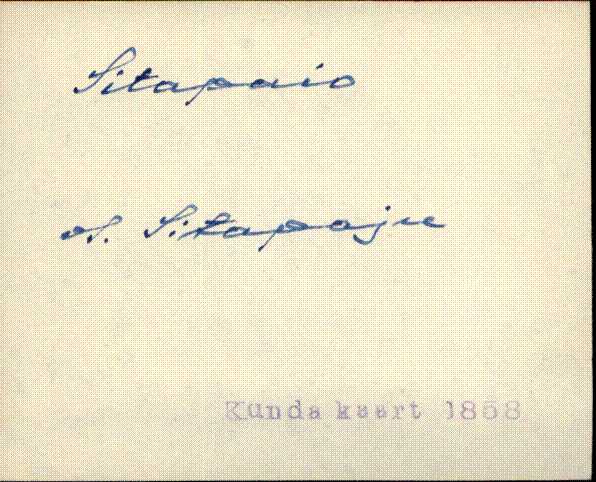 Sitapaio
ol. Sitapaju
Kunda kaart 1858